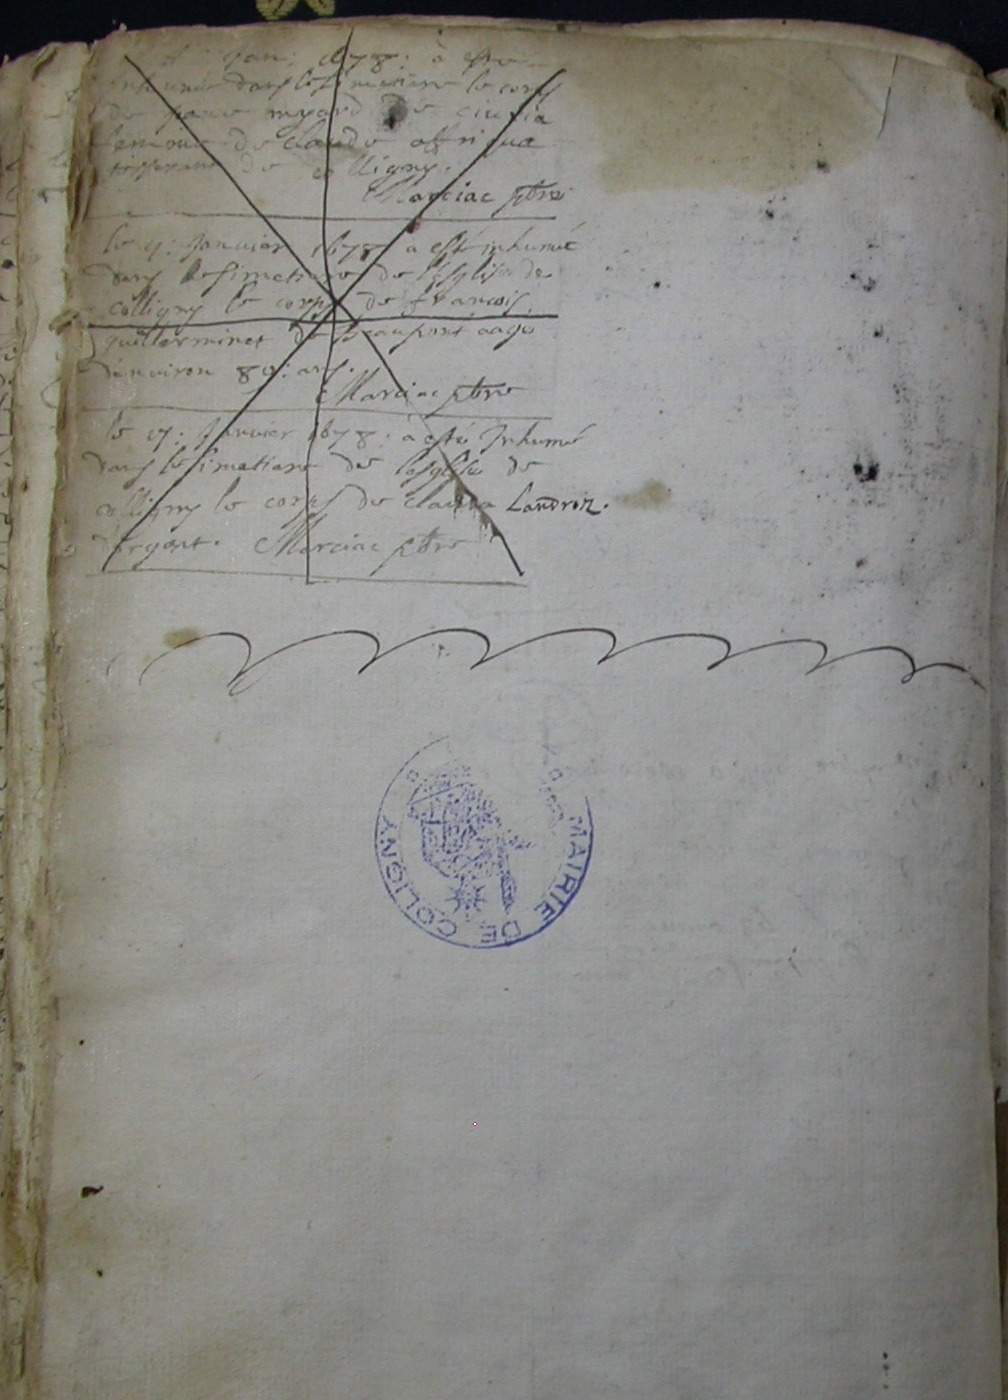 jan: 1678: à esté
inhumée dans le simetiere le corps
de myard de
femme de claude
de colligny.
Marciac ptre
le 9: Janvier 1678 a esté inhumé
dans le simetiere de l'esglise de
colligny le corps de francois
guillerminet de beaupont aagé
d'environ 80: ans.
Marciac ptre
le 17: Janvier 1678: à esté Inhumé
dans le simetiere de l'esglise de
colligny le corps de clauda Landron.
Marciac ptre
MAIRIE DE COLIGNY